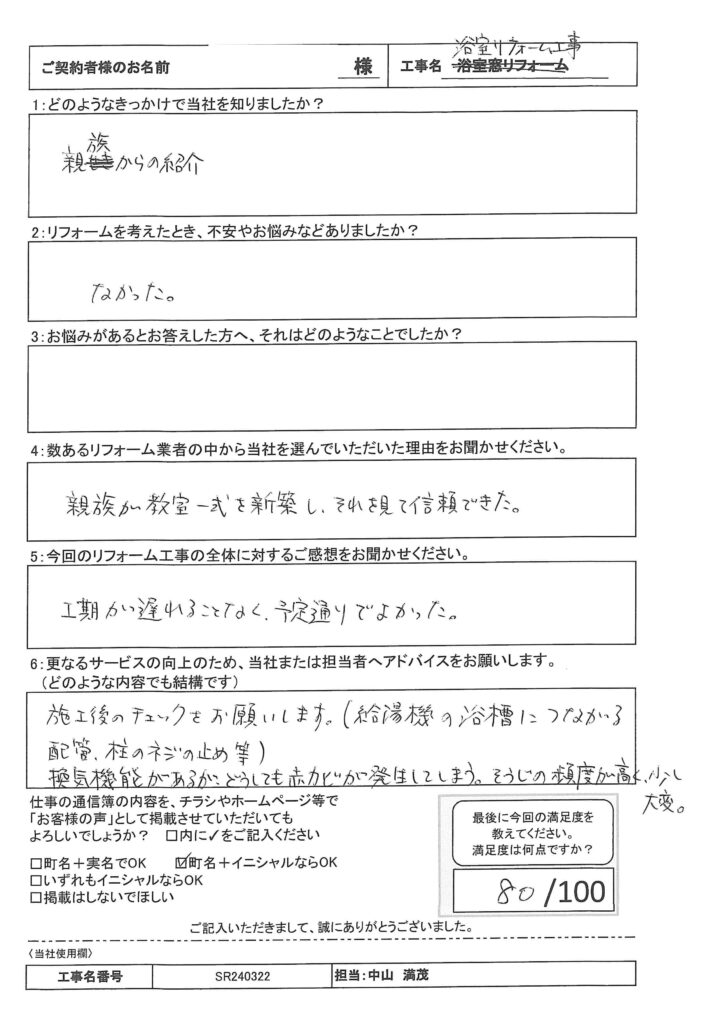 浴室リフォーム工事
ご契約者様のお名前 様 工事名 浴室窓リフォーム
1:どのようなきっかけで当社を知りましたか？
族
親 からの紹介
2:リフォームを考えたとき、不安やお悩みなどありましたか？
なかった。
3:お悩みがあるとお答えした方へ、それはどのようなことでしたか？
4:数あるリフォーム業者の中から当社を選んでいただいた理由をお聞かせください。
親族が教室一式を新築し、それを見て信頼できた。
5:今回のリフォーム工事の全体に対するご感想をお聞かせください。
工期が遅れることなく、予定通りでよかった。
6:更なるサービスの向上のため、当社または担当者へアドバイスをお願いします。
（どのような内容でも結構です）
施工後のチェックをお願いします。（給湯機の浴槽につながる
配管、柱のネジの止め等）
換気機能があるが、どうしても赤カビが発生してしまう。そうじの頻度が高く、少し
大変。
仕事の通信簿の内容を、チラシやホームページ等で
「お客様の声」として掲載させていただいても
よろしいでしょうか？ □内に✓をご記入ください
□町名＋実名でOK ☑町名＋イニシャルならOK
□いずれもイニシャルならOK
□掲載はしないでほしい
最後に今回の満足度を
教えてください。
満足度は何点ですか？
80/100
ご記入いただきまして、誠にありがとうございました。
〈当社使用欄〉
工事名番号 SR240322 担当:中山 満茂